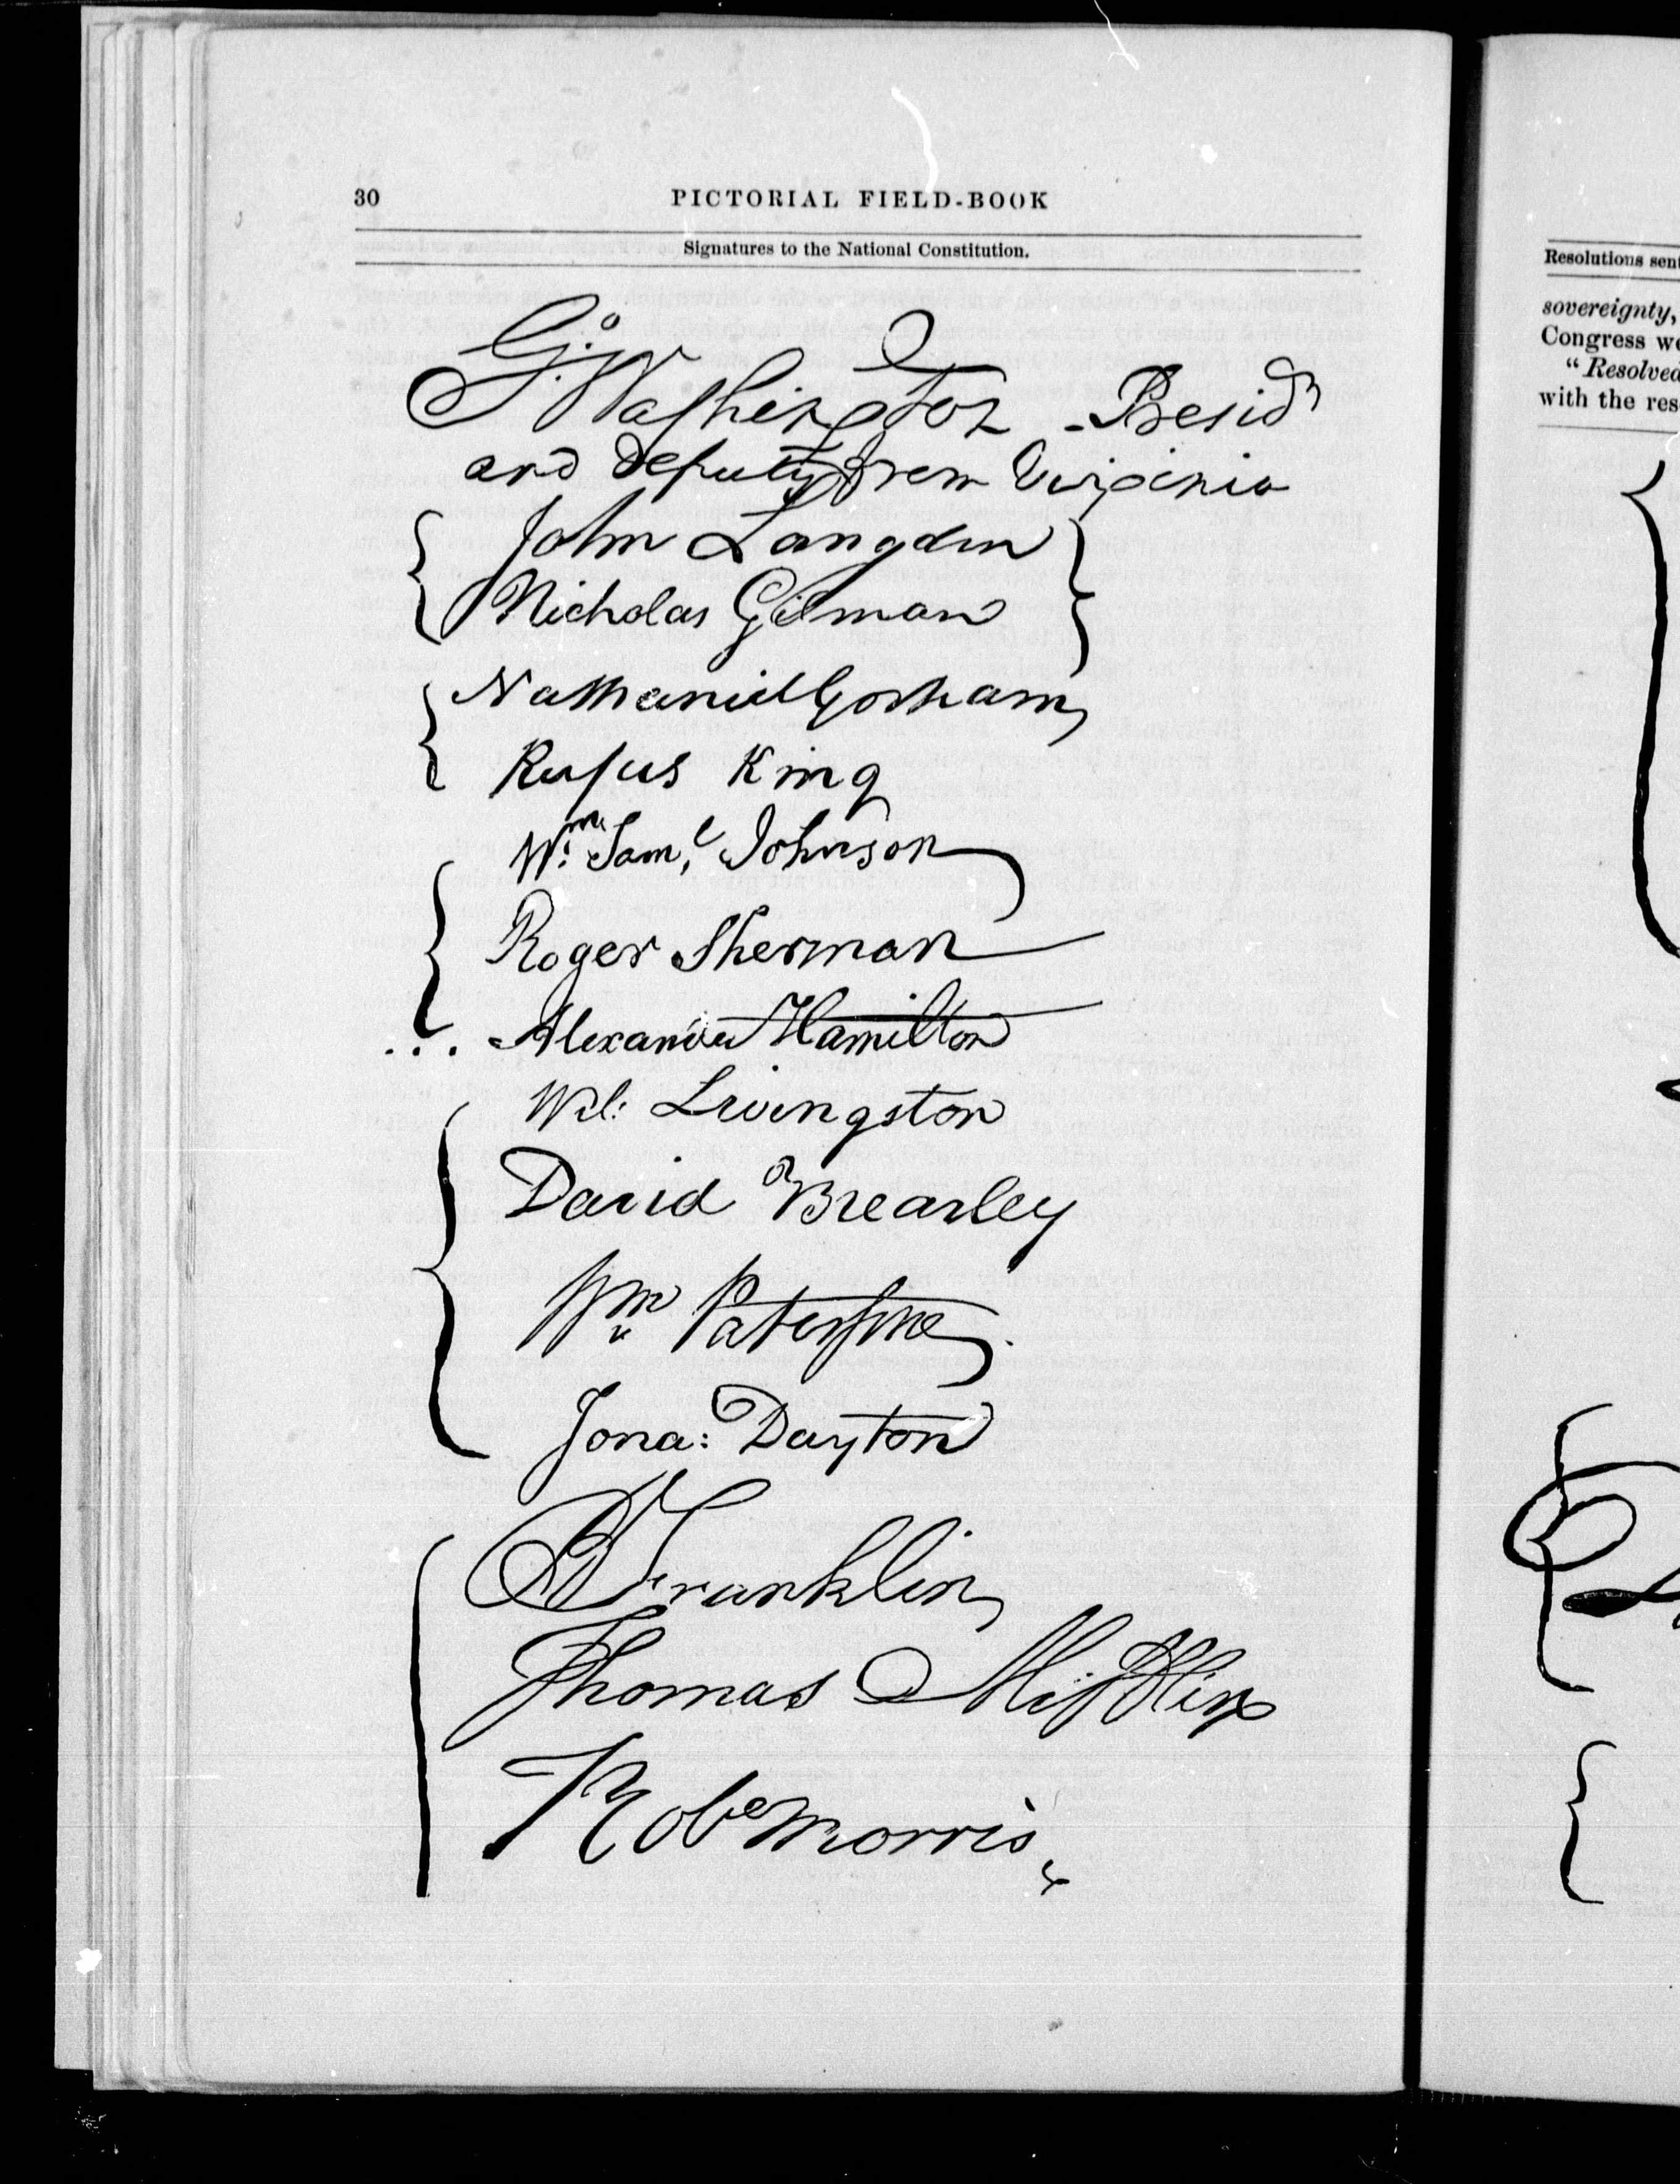 30 PICTORIAL FIELD-BOOK
Signatures to the National Constitution.
Go: Washington - Presidt
and deputy from Virginia
John Langdon
Nicholas Gilman
Nathaniel Gorham
Rufus King
Wm: Saml. Johnson
Roger Sherman
... Alexander Hamilton
Wil: Livingston
David Brearley
Wm Paterson.
Jona: Dayton
B Franklin
Thomas Mifflin
Robt Morris
Resolutions sent
sovereignty,
Congress we
“Resolved
with the res